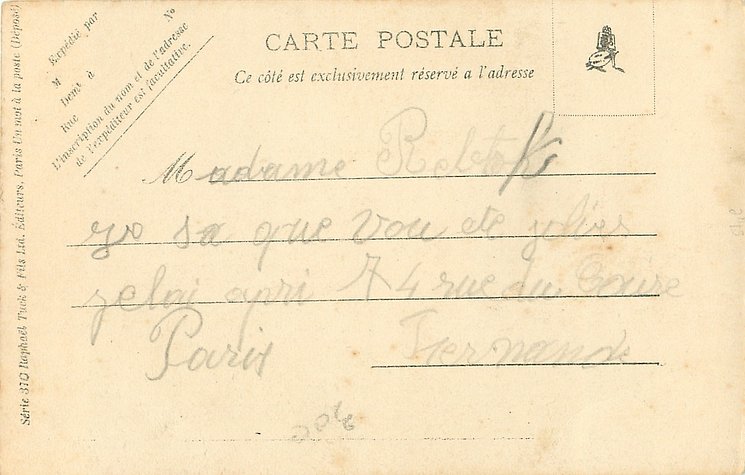 CARTE POSTALE
Ce côté est exclusivement réservé a l'adresse
Expédié par
M N°
Demt à
Rue
L'inscription du nom et de l'adresse
de l'expéditeur est facultative.
Série 370 Raphaël Tuck & Fils Ltd. Éditeurs, Paris Un mot à la poste (Déposé)
Madame
sa que Vou ete jolies
jelai apri 74 rue du Caire
Paris Fernande